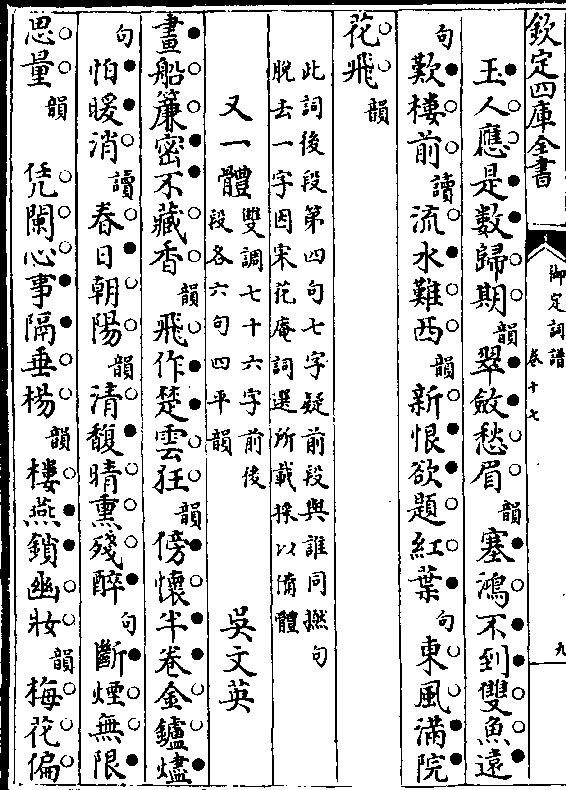 欽定四庫全書
御定詞譜
卷十七
九
玉人應是數歸期韻翠斂愁眉韻塞鴻不到雙魚遠
句歎樓前讀流水難西韻新恨欲題紅葉句東風滿院
花飛韻
此詞後段第四句七字疑前段與誰同撚句
脫去一字因宋花庵詞選所載採以備體
又一體 雙調七十六字前後
段各六句四平韻 吳文英
畫船簾密不藏香韻飛作楚雲狂韻傍懷半卷金鑪燼
句怕暖消讀春日朝陽韻清馥晴熏殘醉句斷煙無限
思量韻 凭闌心事隔垂楊韻樓燕鎖幽妝韻梅花偏